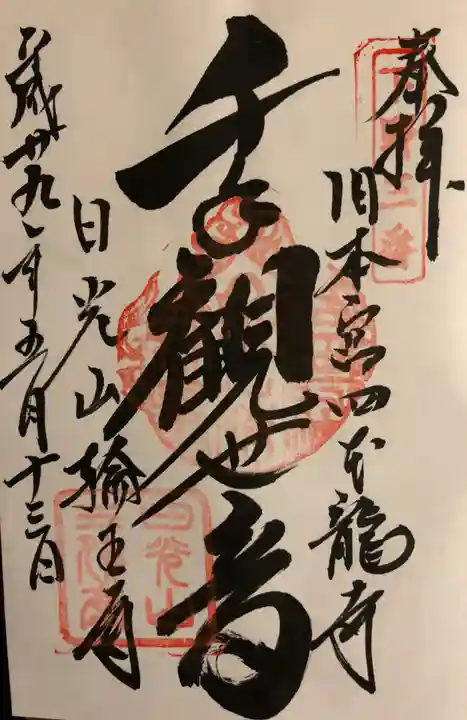 奉拝
旧本宮四本龍寺
千手観世音
日光山輪王寺
平成廿九年五月十三日
日光山